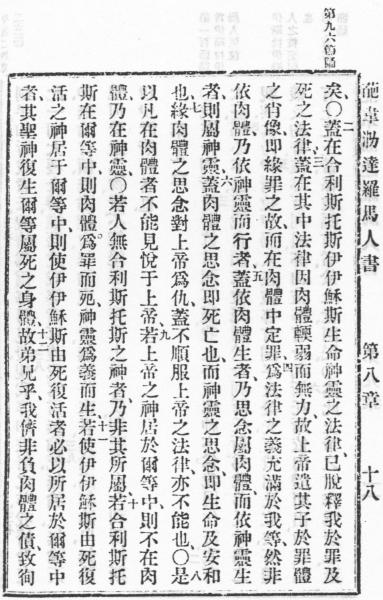 葩韋泐達羅馬人書 第八章 十八
矣、〇二蓋在合利斯托斯伊伊穌斯生命神靈之法律、已脫釋我於罪及
死之法律、三蓋在其中法律因肉體輭弱而無力、故上帝遣其子於罪體
之肖像、即緣罪之故、而在肉體中定罪、四爲法律之義充滿於我等、然非
依肉體、乃依神靈而行者、五蓋依肉體生者乃思念屬肉體、而依神靈生
者則屬神靈、六蓋肉體之思念即死亡也、而神靈之思念即生命及安和
也、七緣肉體之思念對上帝爲仇、蓋不順服上帝之法律、亦不能也、〇八是
以凡在肉體者不能見悅于上帝、九若上帝之神居於爾等中、則不在肉
體、乃在神靈、〇若人無合利斯托斯之神者、乃非其所屬、十若合利斯托
斯在爾等中、則肉體爲罪而死、神靈爲義而生、十一若使伊伊穌斯由死復
活之神居于爾等中、則使伊伊穌斯由死復活者必以所居於爾等中
者其聖神復生爾等屬死之身體、十二故弟兄乎、我儕非負肉體之債、致徇
第九六